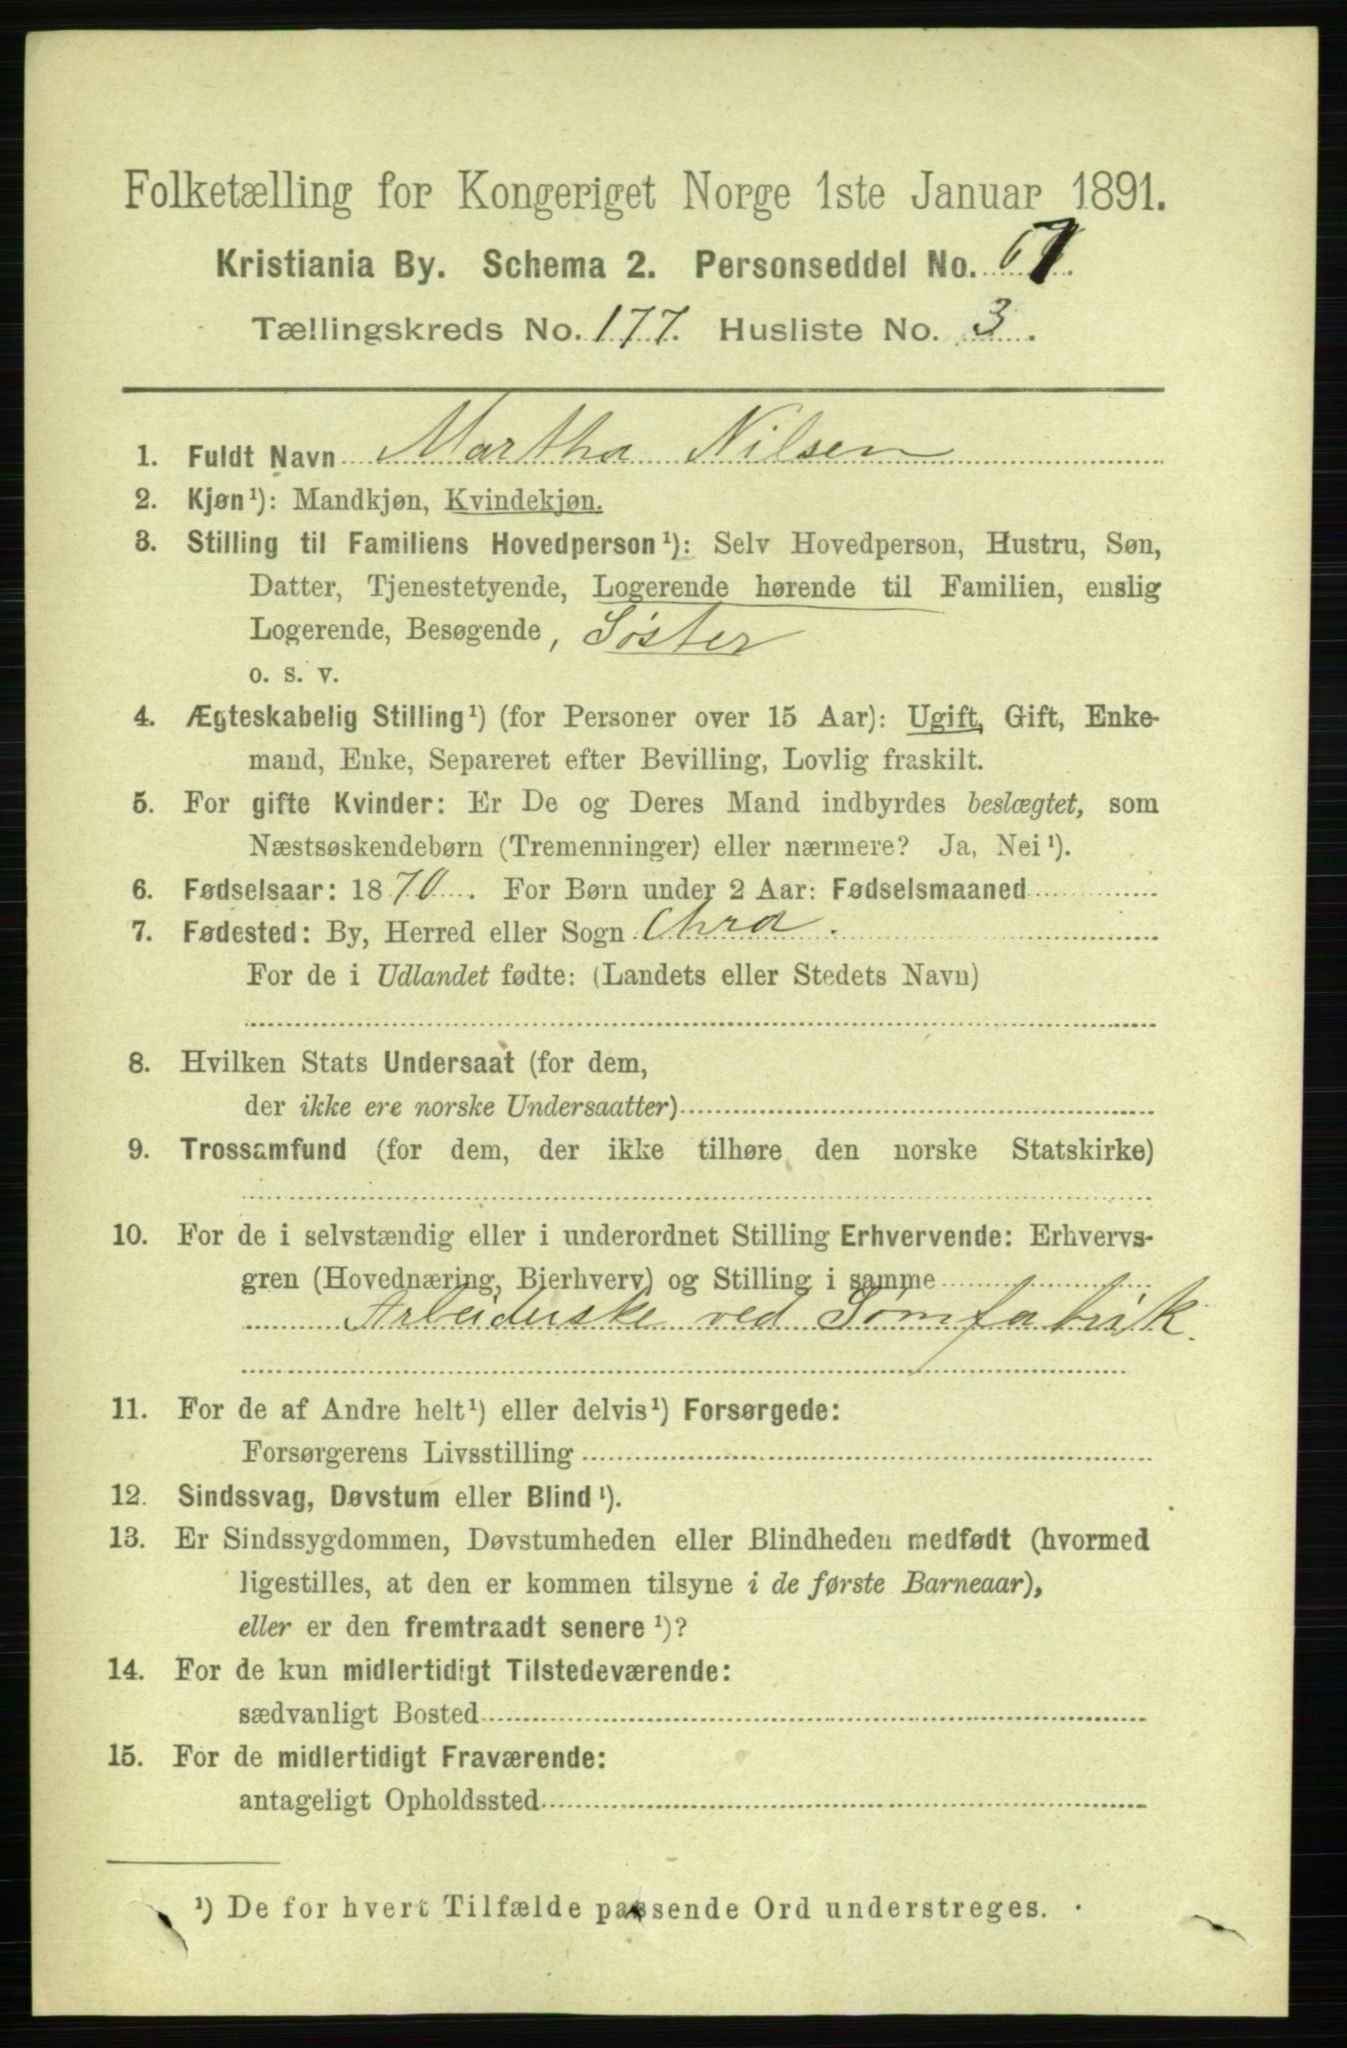 Folketælling for Kongeriget Norge 1ste Januar 1891.
Kristiania By. Schema 2. Personseddel No. 67.
Tællingskreds No. 177. Husliste No. 3.
1. Fuldt Navn Martha Nilsen
2. Kjøn¹): Mandkjøn, Kvindekjøn.
3. Stilling til Familiens Hovedperson¹): Selv Hovedperson, Hustru, Søn,
Datter, Tjenestetyende, Logerende hørende til Familien, enslig
Logerende, Besøgende, Söster
o. s. v.
4. Ægteskabelig Stilling¹) (for Personer over 15 Aar): Ugift, Gift, Enke-
mand, Enke, Separeret efter Bevilling, Lovlig fraskilt.
5. For gifte Kvinder: Er De og Deres Mand indbyrdes beslægtet, som
Næstsøskendebørn (Tremenninger) eller nærmere? Ja, Nei¹).
6. Fødselsaar: 1870. For Børn under 2 Aar: Fødselsmaaned
7. Fødested: By, Herred eller Sogn Chra.
For de i Udlandet fødte: (Landets eller Stedets Navn)
8. Hvilken Stats Undersaat (for dem,
der ikke ere norske Undersaatter)
9. Trossamfund (for dem, der ikke tilhøre den norske Statskirke)
10. For de i selvstændig eller i underordnet Stilling Erhvervende: Erhvervs-
gren (Hovednæring, Bierhverv) og Stilling i samme
Arbeiderske ved Sömfabrik.
11. For de af Andre helt¹) eller delvis¹) Forsørgede:
Forsørgerens Livsstilling
12. Sindssvag, Døvstum eller Blind¹).
13. Er Sindssygdommen, Døvstumheden eller Blindheden medfødt (hvormed
ligestilles, at den er kommen tilsyne i de første Barneaar),
eller er den fremtraadt senere¹)?
14. For de kun midlertidigt Tilstedeværende:
sædvanligt Bosted
15. For de midlertidigt Fraværende:
antageligt Opholdssted
¹) De for hvert Tilfælde passende Ord understreges.